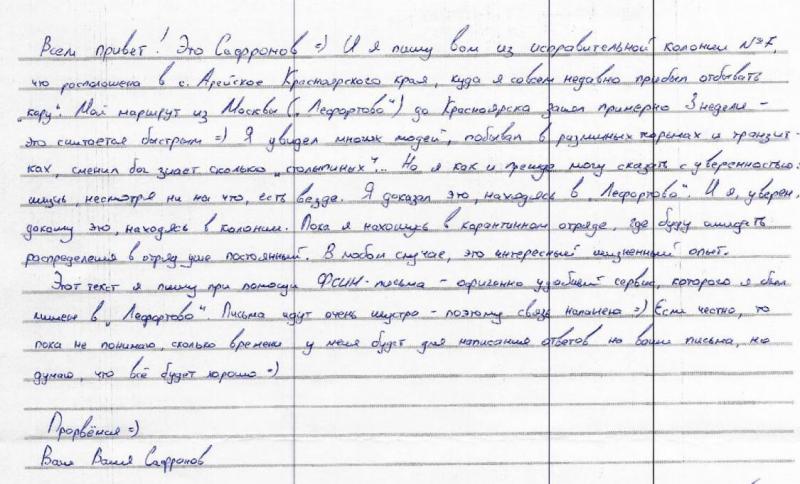 Всем привет! Это Сафронов =) И я пишу вам из исправительной колонии №7,
что расположена в с. Арейское Красноярского края, куда я совсем недавно прибыл отбывать
"кару". Мой маршрут из Москвы ("Лефортово") до Красноярска занял примерно 3 недели -
это считается быстрым =) Я увидел многих людей, побывал в различных тюрьмах и транзит-
ках, сменил бог знает сколько "столыпиных"... Но я как и прежде могу сказать с уверенностью:
жизнь, несмотря ни на что, есть везде. Я доказал это, находясь в "Лефортово". И я, уверен,
докажу это, находясь в колонии. Пока я нахожусь в карантинном отряде, где буду ожидать
распределения в отряд уже постоянный. В любом случае, это интересный жизненный опыт.
Этот текст я пишу при помощи ФСИН-письма - офигенно удобный сервис, которого я был
лишён в "Лефортово". Письма идут очень шустро - поэтому связь налажена =) Если честно, то
пока не понимаю, сколько времени у меня будет для написания ответов на ваши письма, но
думаю, что всё будет хорошо =)
Прорвёмся =)
Ваш Ваня Сафронов